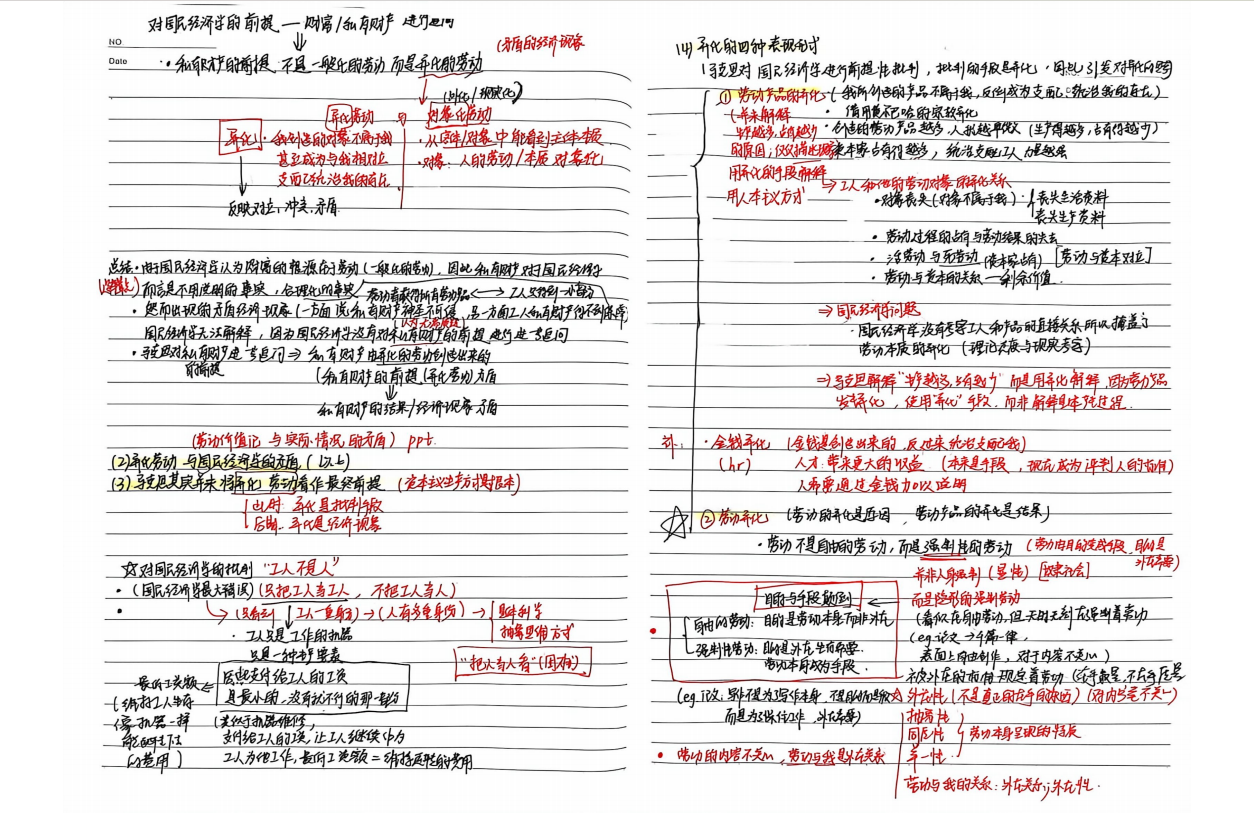 对国民经济学的前提 — 财富/私有财产 进行追问
NO
Date
• 私有财产的前提 不是一般化的劳动 而是异化的劳动
(矛盾的经济现象
(外化/现实化)
异化劳动 与 对象化劳动
异化 • 我创造的对象不属于我
甚至成为与我相对立
支配统治我的存在
• 从客体/对象中能看到主体本质
• 对象:人的劳动/本质 对象化
反映对立,冲突,矛盾
总结 • 由于国民经济学认为财富的根源在于劳动(一般化的劳动),因此私有财产对于国民经济学
而言是不用证明的事实,合理化的事实 劳动者获得所有劳动产品 ⟷ 工人只得到一小部分
• 然而出现的矛盾经济现象(一方面说私有财产神圣不可侵,另一方面工人私有财产得不到保障)
国民经济学无法解释,因为国民经济学没有对私有财产的前提进行进一步追问
• 马克思对私有财产进一步追问 ⇒ 私有财产由异化的劳动创造出来的
的前提
(私有财产的前提(异化劳动)矛盾
私有财产的结果/经济现象矛盾
(劳动价值论 与实际情况的矛盾) ppt.
(2) 异化劳动 与国民经济学的矛盾 (以上)
(3) 马克思其实并未将异化劳动看作最终前提 (资本主义生产方式是根本)
此时:异化是批判手段
后期:异化是经济现象
☆对国民经济学的批判 "工人不是人"
• (国民经济学最大错误) (只把工人当工人,不把工人当人)
• (只看到 工人一重身份) → (人有多重身份) →
• 工人只是工作的机器
只是一种生产要素
抽象思维方式
"把人当人看" (固有)
最低工资额
因此支付给工人的工资
是最小的,没有就不行的那一部分
(维持工人生存
像机器一样
的费用)
类似于机器维修,
支付给工人的工资,让工人继续作为
工人为他工作,最低工资额 = 维持存在的费用
(4) 异化的四种表现形式
马克思对国民经济学进行前提性批判,批判的手段是异化,因此引发对异化的
① 劳动产品的异化 (我所创造的产品不属于我,反倒成为支配、统治我的存在)
(并未解释
• 借用费尔巴哈的宗教异化
生产越多,占有越少
• 创造的劳动产品越多,人就越卑微 (生产得越多,占有得越少)
的原因,仅仅描述现象
资本家占有得越多,统治支配工人力量越强
用异化的手段解释
用人本主义方式
→ 工人和他的劳动对象的异化关系
• 对象丧失 (对象不属于我) 丧失生活资料
丧失生产资料
• 劳动过程的占有与劳动结果的失去
• 活劳动与死劳动 (资本家占有) [劳动与资本对立]
• 劳动与资本的关系 — 剩余价值
⇒ 国民经济学问题
• 国民经济学没有考察工人和产品的直接关系 所以掩盖了
劳动本质的异化 (理论反思与现实考察)
⇒ 马克思解释"生产越多,占有越少" 而是用异化解释,因为劳动产品
发生异化,使用"异化"手段,而非解释具体过程.
补: • 金钱异化 (金钱是创造出来的,反过来统治支配我)
(hr) 人才:带来更大的收益 (本来是手段,现在成为评判人的前提)
人需要通过金钱加以证明
☆ ② 劳动异化 (劳动的异化是原因,劳动产品的异化是结果)
• 劳动不是自由的劳动,而是强制性的劳动 (劳动由目的变成手段,目的是
外在需要)
并非人身强制 (显性) [奴隶社会]
而是隐形的强制劳动
(看似在自由劳动,但无时无刻在强制着劳动
目的与手段颠倒
自由的劳动:目的是劳动本身而非外在
强制性劳动:目的是外在生存需要.
劳动本身成为手段.
(eg 论文 →
表面上自由创作,对于内容不关心)
被外在的而非
(eg 论文:写作不是为写作本身,
而是为了保住工作,外在需要)
外在性 (不是真正的在乎自身) (对内容毫不关心)
抽象性
同质性
单一性
劳动本身呈现的性质
• 劳动的内容不关心,劳动与我是外在关系
劳动与我的关系:外在关系,外在性.